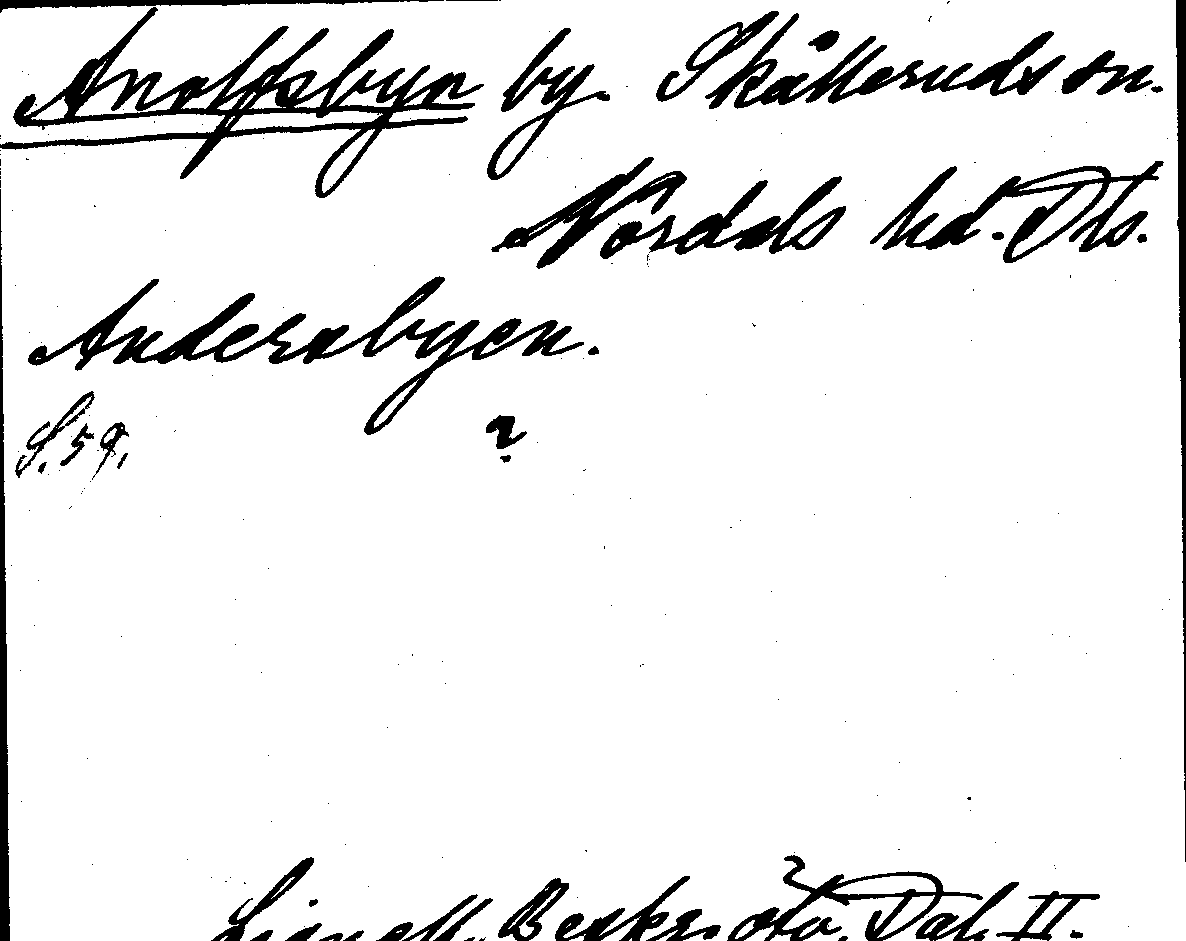 Anolfsbyn by. Skålleruds sn.
Nordals hd. Dls.
Andersbyen.
S. 59. ?
Lignell, Beskr. öfv. Dal. II.